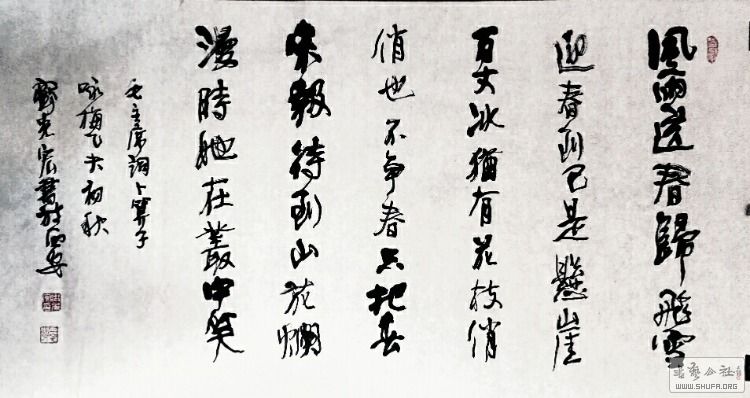 風雨送春歸飛雪
迎春到已是懸崖
百丈冰猶有花枝俏
俏也不争春只把春
来報待到山花爛
漫時她在叢中笑
毛主席词卜算子
咏梅乙未初秋
書於西安
书艺公社
WWW.SHUFA.ORG